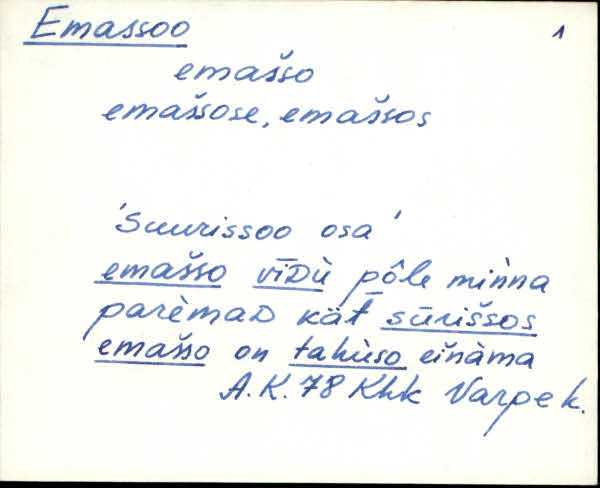 Emassoo 1
emašso
emaššose, emaššos
'Suurissoo osa'
emašso vīDù pôle miǹna
parèmaD kät̄ sūriššos
emašso on tahùso eiǹàma
A.K. 78 Khk Varpe k.